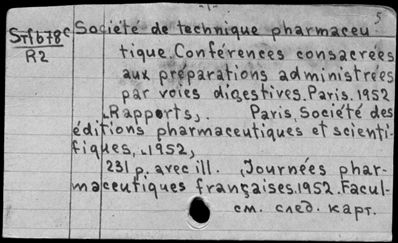 5
Srfb78c Société de technique pharmaceu
R2 tique Conférences consacrées
aux préparations administrées
par voies digestives. Paris. 1952
Rapports, Paris, Société des
éditions pharmaceutiques et scienti-
fiques, 1952,
231 p. avec ill. Journées phar-
maceutiques françaises. 1952. Facul-
см. след. карт.